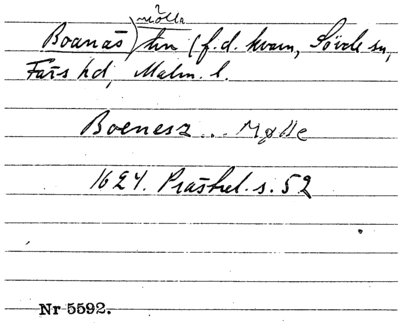 mölla
Boanäs) tin (f.d. kvarn, Sövde sn,
Färs hd, Malm. l.
Boenesz... Mølle
1624. Prästrel. s. 52
Nr 5592.